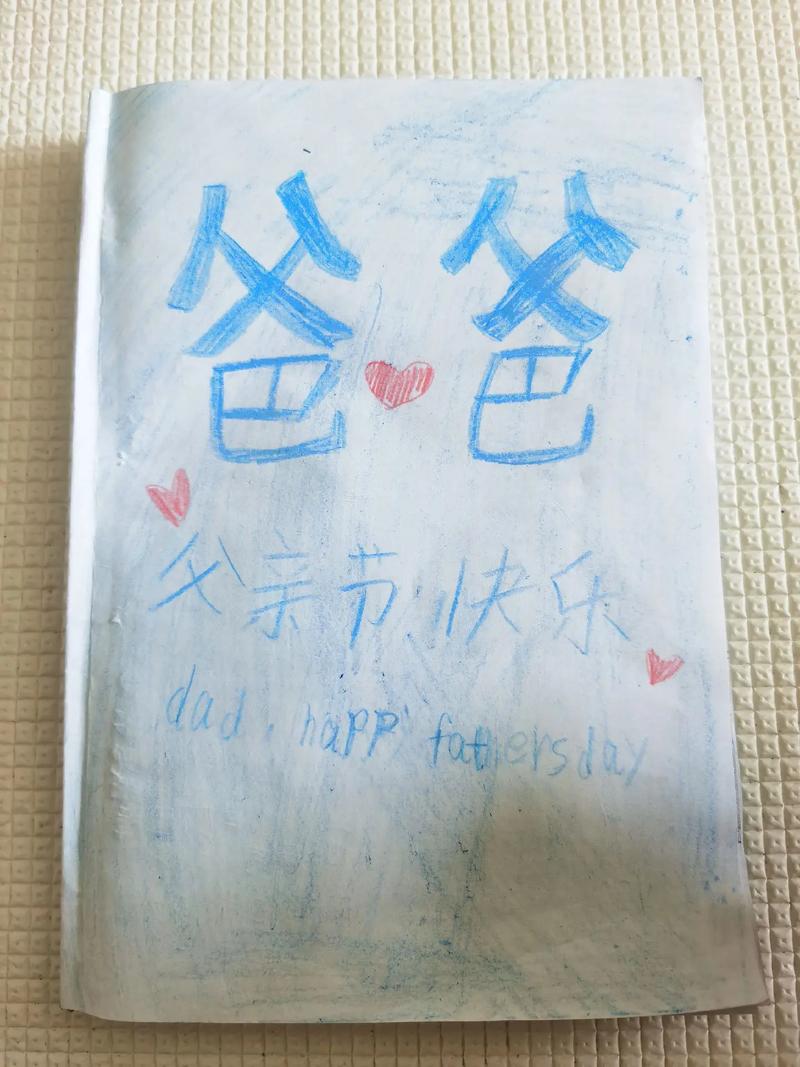 爸爸
父亲节快乐
dad, happi fathersday